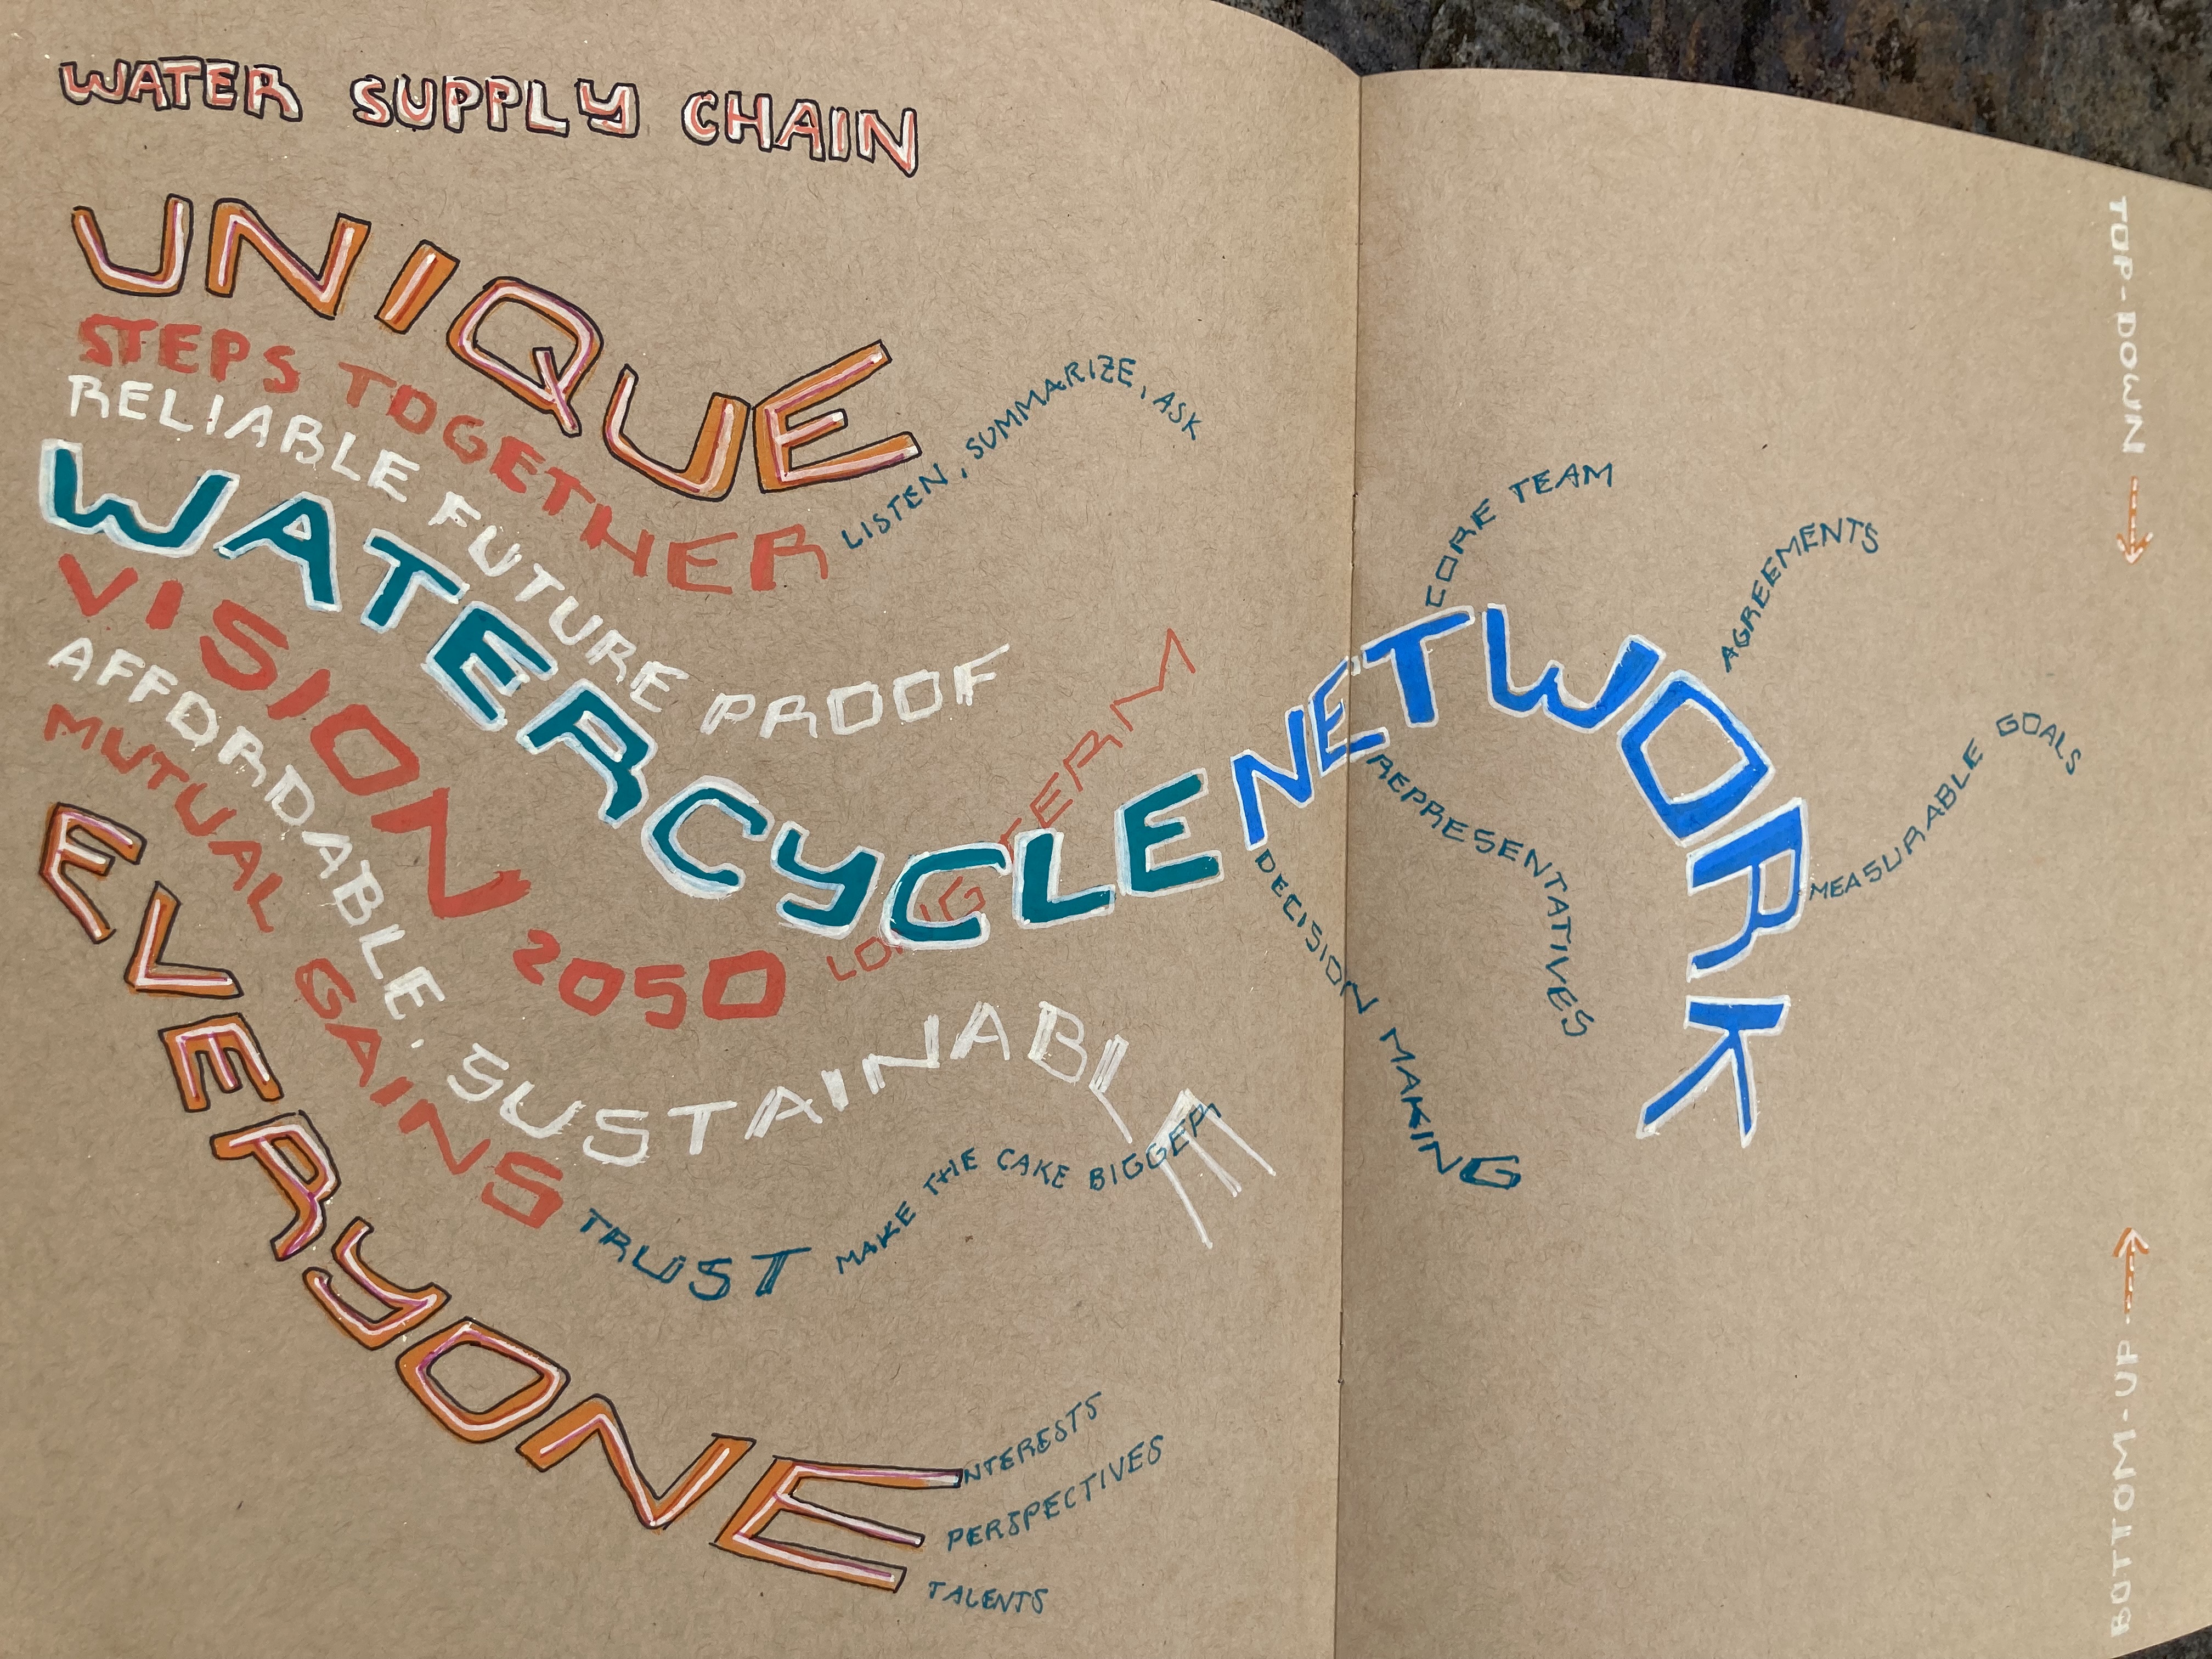 WATER SUPPLY CHAIN
UNIQUE
STEPS TOGETHER
LISTEN, SUMMARIZE, ASK
RELIABLE FUTURE PROOF
WATERCYCLE NETWORK
CORE TEAM
AGREEMENTS
MEASURABLE GOALS
REPRESENTATIVES
DECISION MAKING
VISION 2050
LONG TERM
AFFORDABLE, SUSTAINABLE
MUTUAL GAINS
TRUST
MAKE THE CAKE BIGGER
EVERYONE
INTERESTS
PERSPECTIVES
TALENTS
TOP-DOWN
BOTTOM-UP